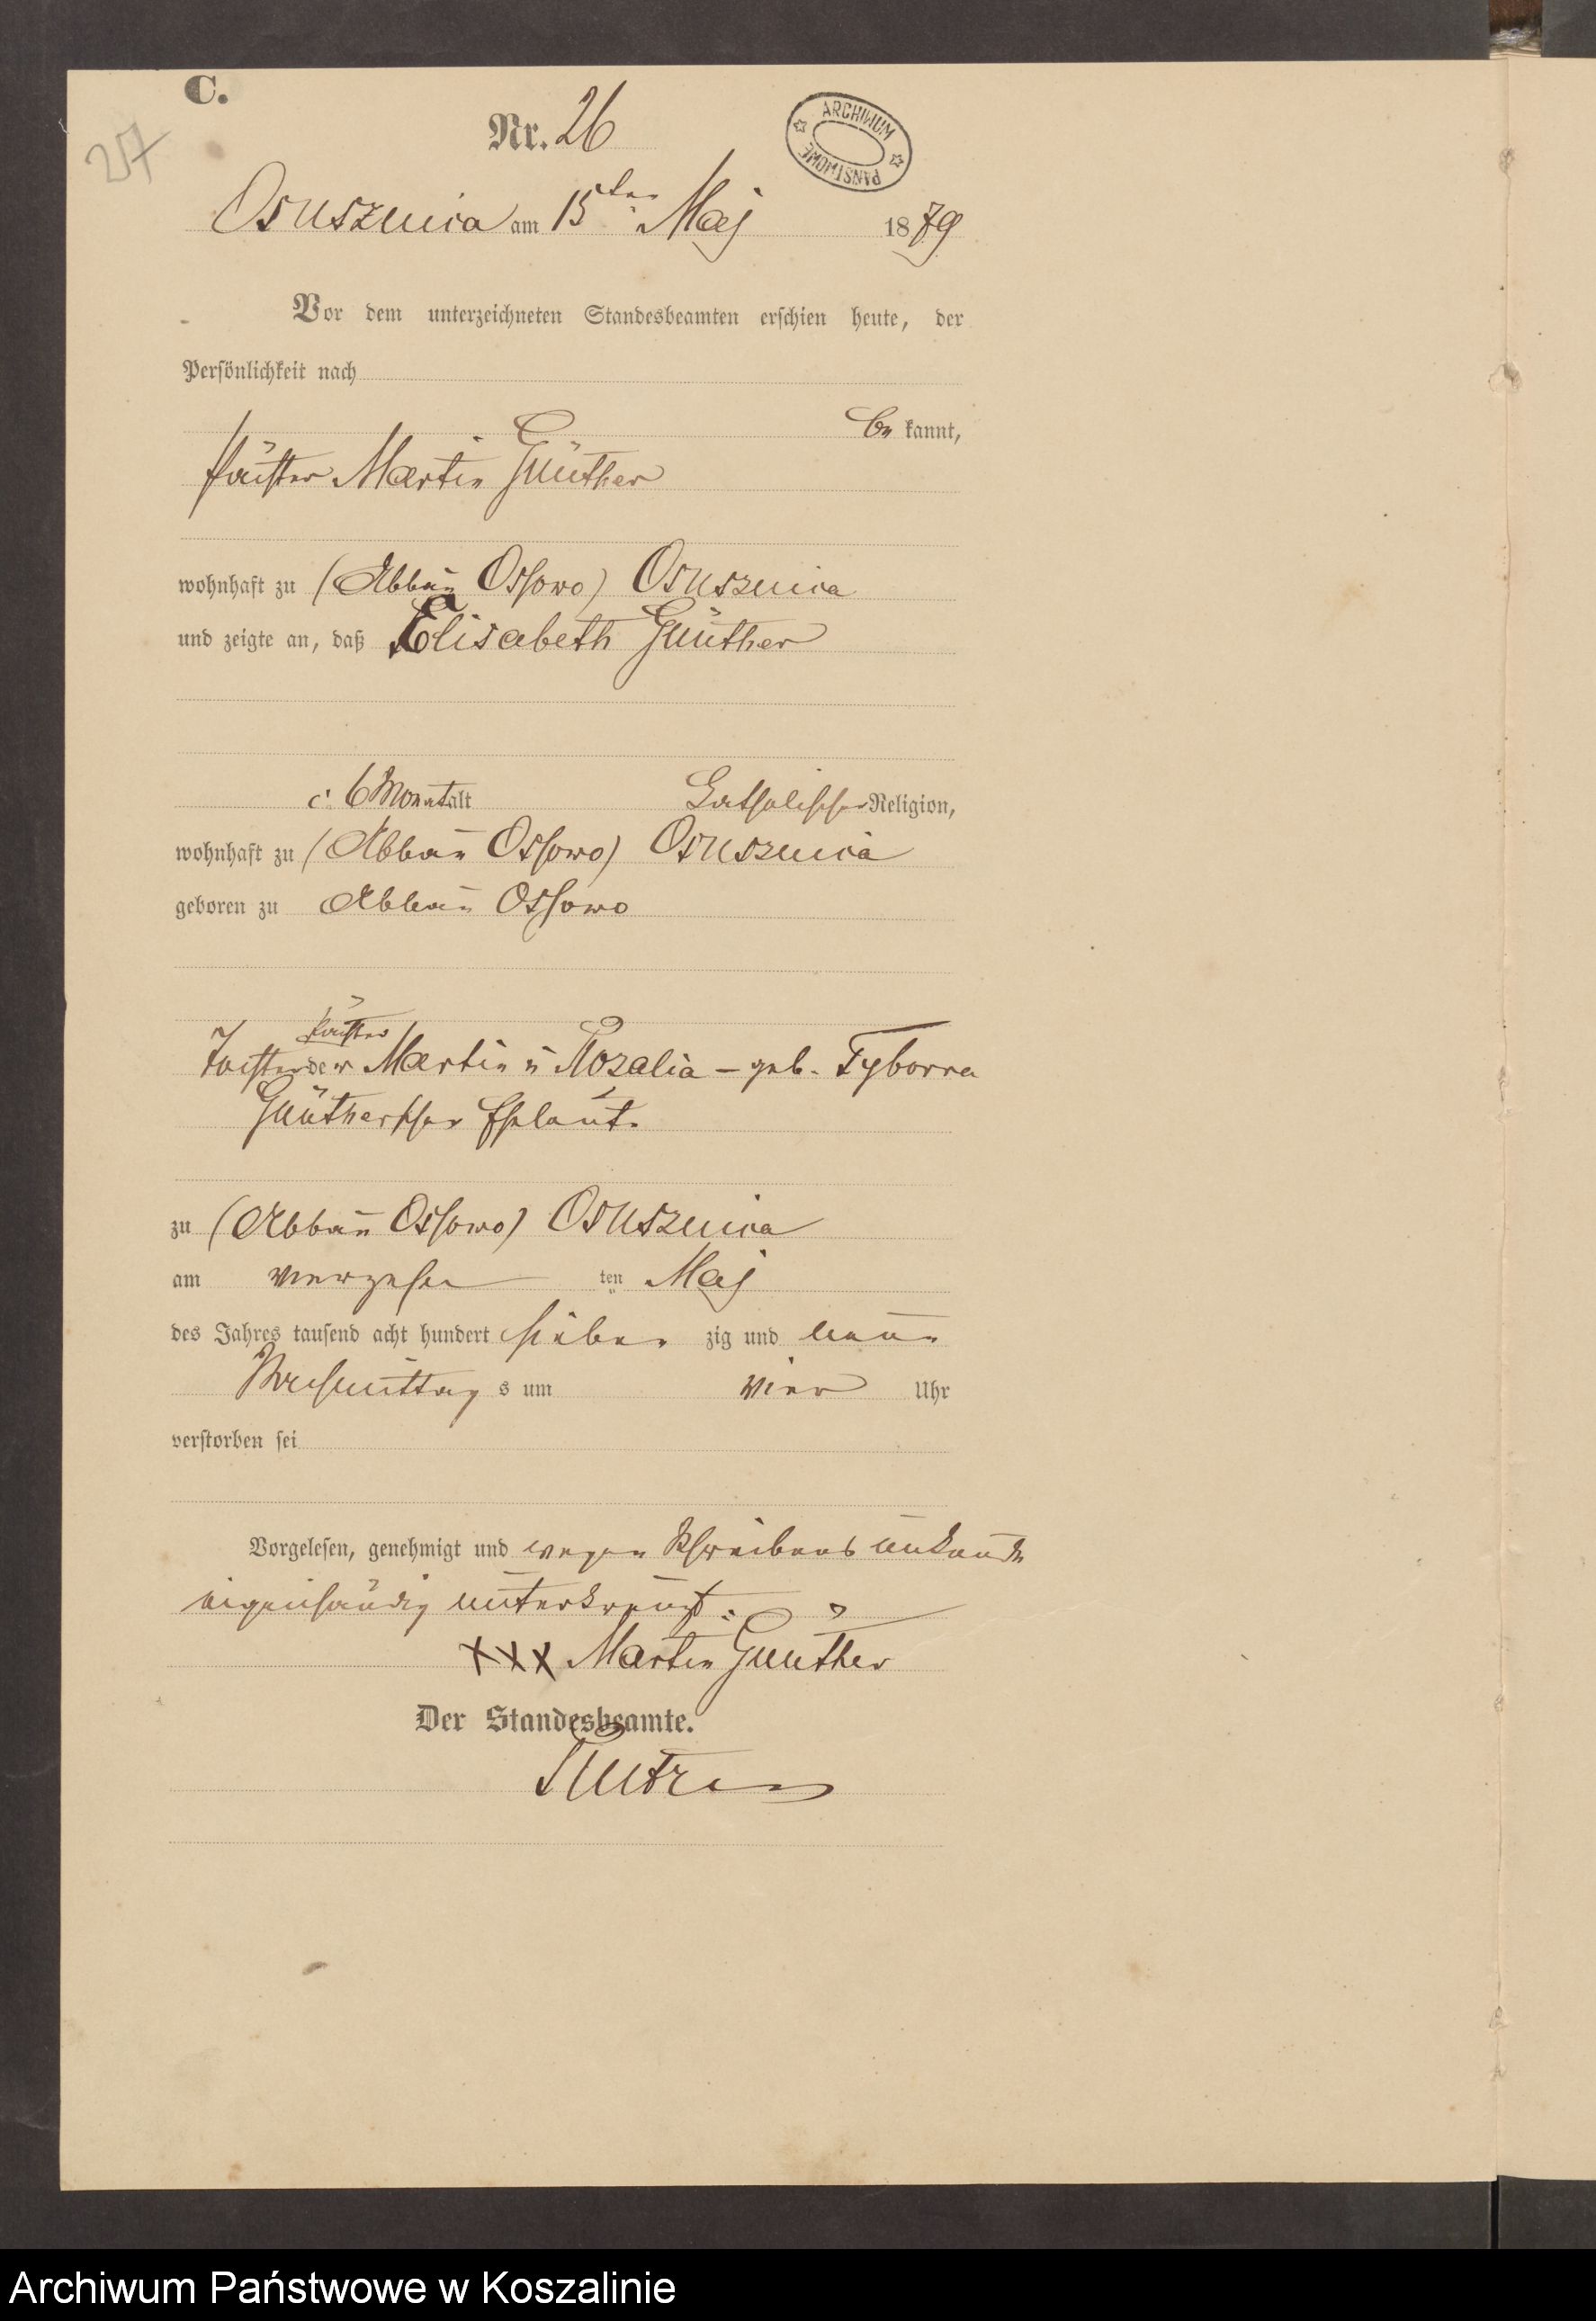 C.
217
Nr. 26
ARCHIWUM PAŃSTWOWE
Osusznica am 15ten Maj 1879
Vor dem unterzeichneten Standesbeamten erschien heute, der
Persönlichkeit nach
be kannt,
Martin Günther
wohnhaft zu (Abbau Ossowo) Osusznica
und zeigte an, daß Elisabeth Günther
c. 6 Monat alt Catholischer Religion,
wohnhaft zu (Abbau Ossowo) Osusznica
geboren zu Abbau Ossowo
Tochter der Martin u Rozalia – geb. Tyborra
Güntherscher Eheleute
zu (Abbau Ossowo) Osusznica
am vierzehn ten Maj
des Jahres tausend acht hundert sieben zig und neun
Nachmittag s um vier Uhr
verstorben sei
Vorgelesen, genehmigt und wegen Schreibens unkunde
eigenhändig unterkreuzt.
XXX Martin Günther
Der Standesbeamte.
Archiwum Państwowe w Koszalinie